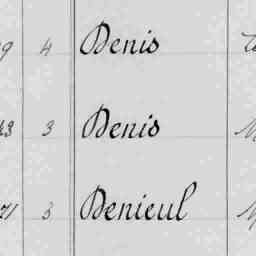 9 4 Denis
43 3 Denis
71 3 Denieul